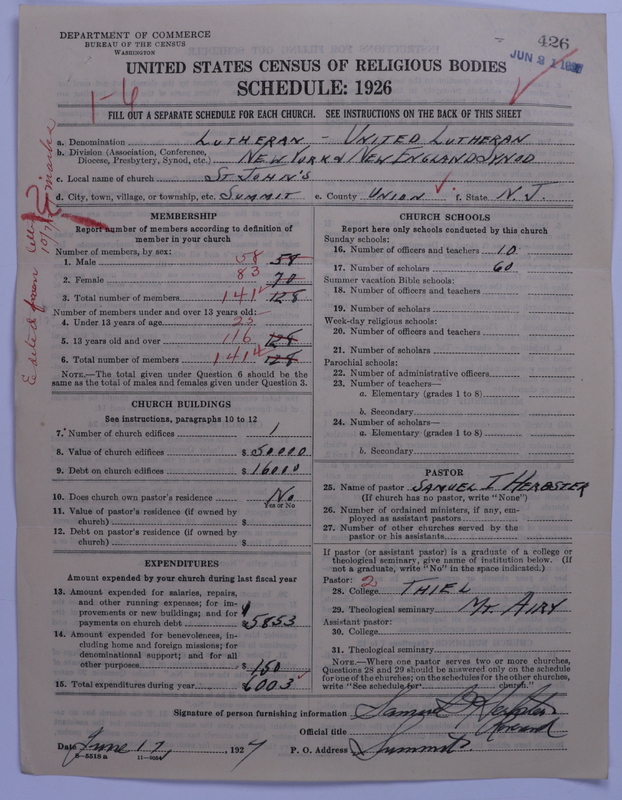 DEPARTMENT OF COMMERCE
BUREAU OF THE CENSUS
WASHINGTON
426
JUN 21
UNITED STATES CENSUS OF RELIGIOUS BODIES
SCHEDULE: 1926
1-6
FILL OUT A SEPARATE SCHEDULE FOR EACH CHURCH. SEE INSTRUCTIONS ON THE BACK OF THIS SHEET
a. Denomination LUTHERAN - UNITED LUTHERAN
b. Division (Association, Conference, Diocese, Presbytery, Synod, etc.) NEW YORK & NEW ENGLAND SYNOD
c. Local name of church ST JOHN'S
d. City, town, village, or township, etc. SUMMIT e. County UNION f. State N. J.
Edited from letter 10/7
MEMBERSHIP
Report number of members according to definition of member in your church
Number of members, by sex:
1. Male 58 58
2. Female 83 70
3. Total number of members 141 128
Number of members under and over 13 years old:
4. Under 13 years of age 25
5. 13 years old and over 116 128
6. Total number of members 141 128
NOTE.—The total given under Question 6 should be the same as the total of males and females given under Question 3.
CHURCH BUILDINGS
See instructions, paragraphs 10 to 12
7. Number of church edifices 1
8. Value of church edifices $ 50000
9. Debt on church edifices $ 16000
10. Does church own pastor's residence No
Yes or No
11. Value of pastor's residence (if owned by church) $
12. Debt on pastor's residence (if owned by church) $
EXPENDITURES
Amount expended by your church during last fiscal year
13. Amount expended for salaries, repairs, and other running expenses; for improvements or new buildings; and for payments on church debt $ 5853
14. Amount expended for benevolences, including home and foreign missions; for denominational support; and for all other purposes $ 150
15. Total expenditures during year 6003
CHURCH SCHOOLS
Report here only schools conducted by this church
Sunday schools:
16. Number of officers and teachers 10
17. Number of scholars 60
Summer vacation Bible schools:
18. Number of officers and teachers
19. Number of scholars
Week-day religious schools:
20. Number of officers and teachers
21. Number of scholars
Parochial schools:
22. Number of administrative officers
23. Number of teachers—
a. Elementary (grades 1 to 8)
b. Secondary
24. Number of scholars—
a. Elementary (grades 1 to 8)
b. Secondary
PASTOR
25. Name of pastor SAMUEL I HERBSTER
(If church has no pastor, write "None")
26. Number of ordained ministers, if any, employed as assistant pastors
27. Number of other churches served by the pastor or his assistants
If pastor (or assistant pastor) is a graduate of a college or theological seminary, give name of institution below. (If not a graduate, write "No" in the space indicated.)
Pastor: 2
28. College THIEL
29. Theological seminary MT. AIRY
Assistant pastor:
30. College
31. Theological seminary
NOTE.—Where one pastor serves two or more churches, Questions 28 and 29 should be answered only on the schedule for one of the churches; on the schedules for the other churches, write "See schedule for church."
Signature of person furnishing information Samuel I Herbster
Official title
Date June 17, 1927 P. O. Address Summit